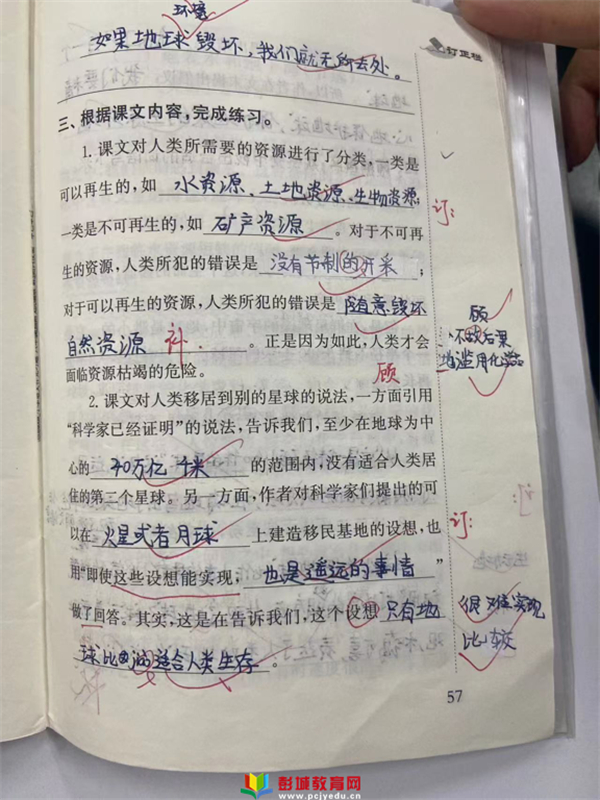 环境
如果地球毁坏,我们就无所去处。
订正栏
三、根据课文内容,完成练习。
1. 课文对人类所需要的资源进行了分类,一类是
可以再生的,如 水资源、土地资源、生物资源;
一类是不可再生的,如 矿产资源 。对于不可再
订:
生的资源,人类所犯的错误是 没有节制的开采 ;
对于可以再生的资源,人类所犯的错误是 随意毁坏
顾
自然资源 补 。正是因为如此,人类才会
不顾后果
地滥用化学品
面临资源枯竭的危险。
顾
2. 课文对人类移居到别的星球的说法,一方面引用
“科学家已经证明”的说法,告诉我们,至少在地球为中
心的 40万亿千米 的范围内,没有适合人类居
住的第二个星球。另一方面,作者对科学家们提出的可
以在 火星或者月球 上建造移民基地的设想,也
订:
用“即使这些设想能实现, 也是遥远的事情 ”
做了回答。其实,这是在告诉我们,这个设想 只有地
很难实现
比较
球比 适合人类生存 。
57
彭城教育网
www.pcjyedu.cn